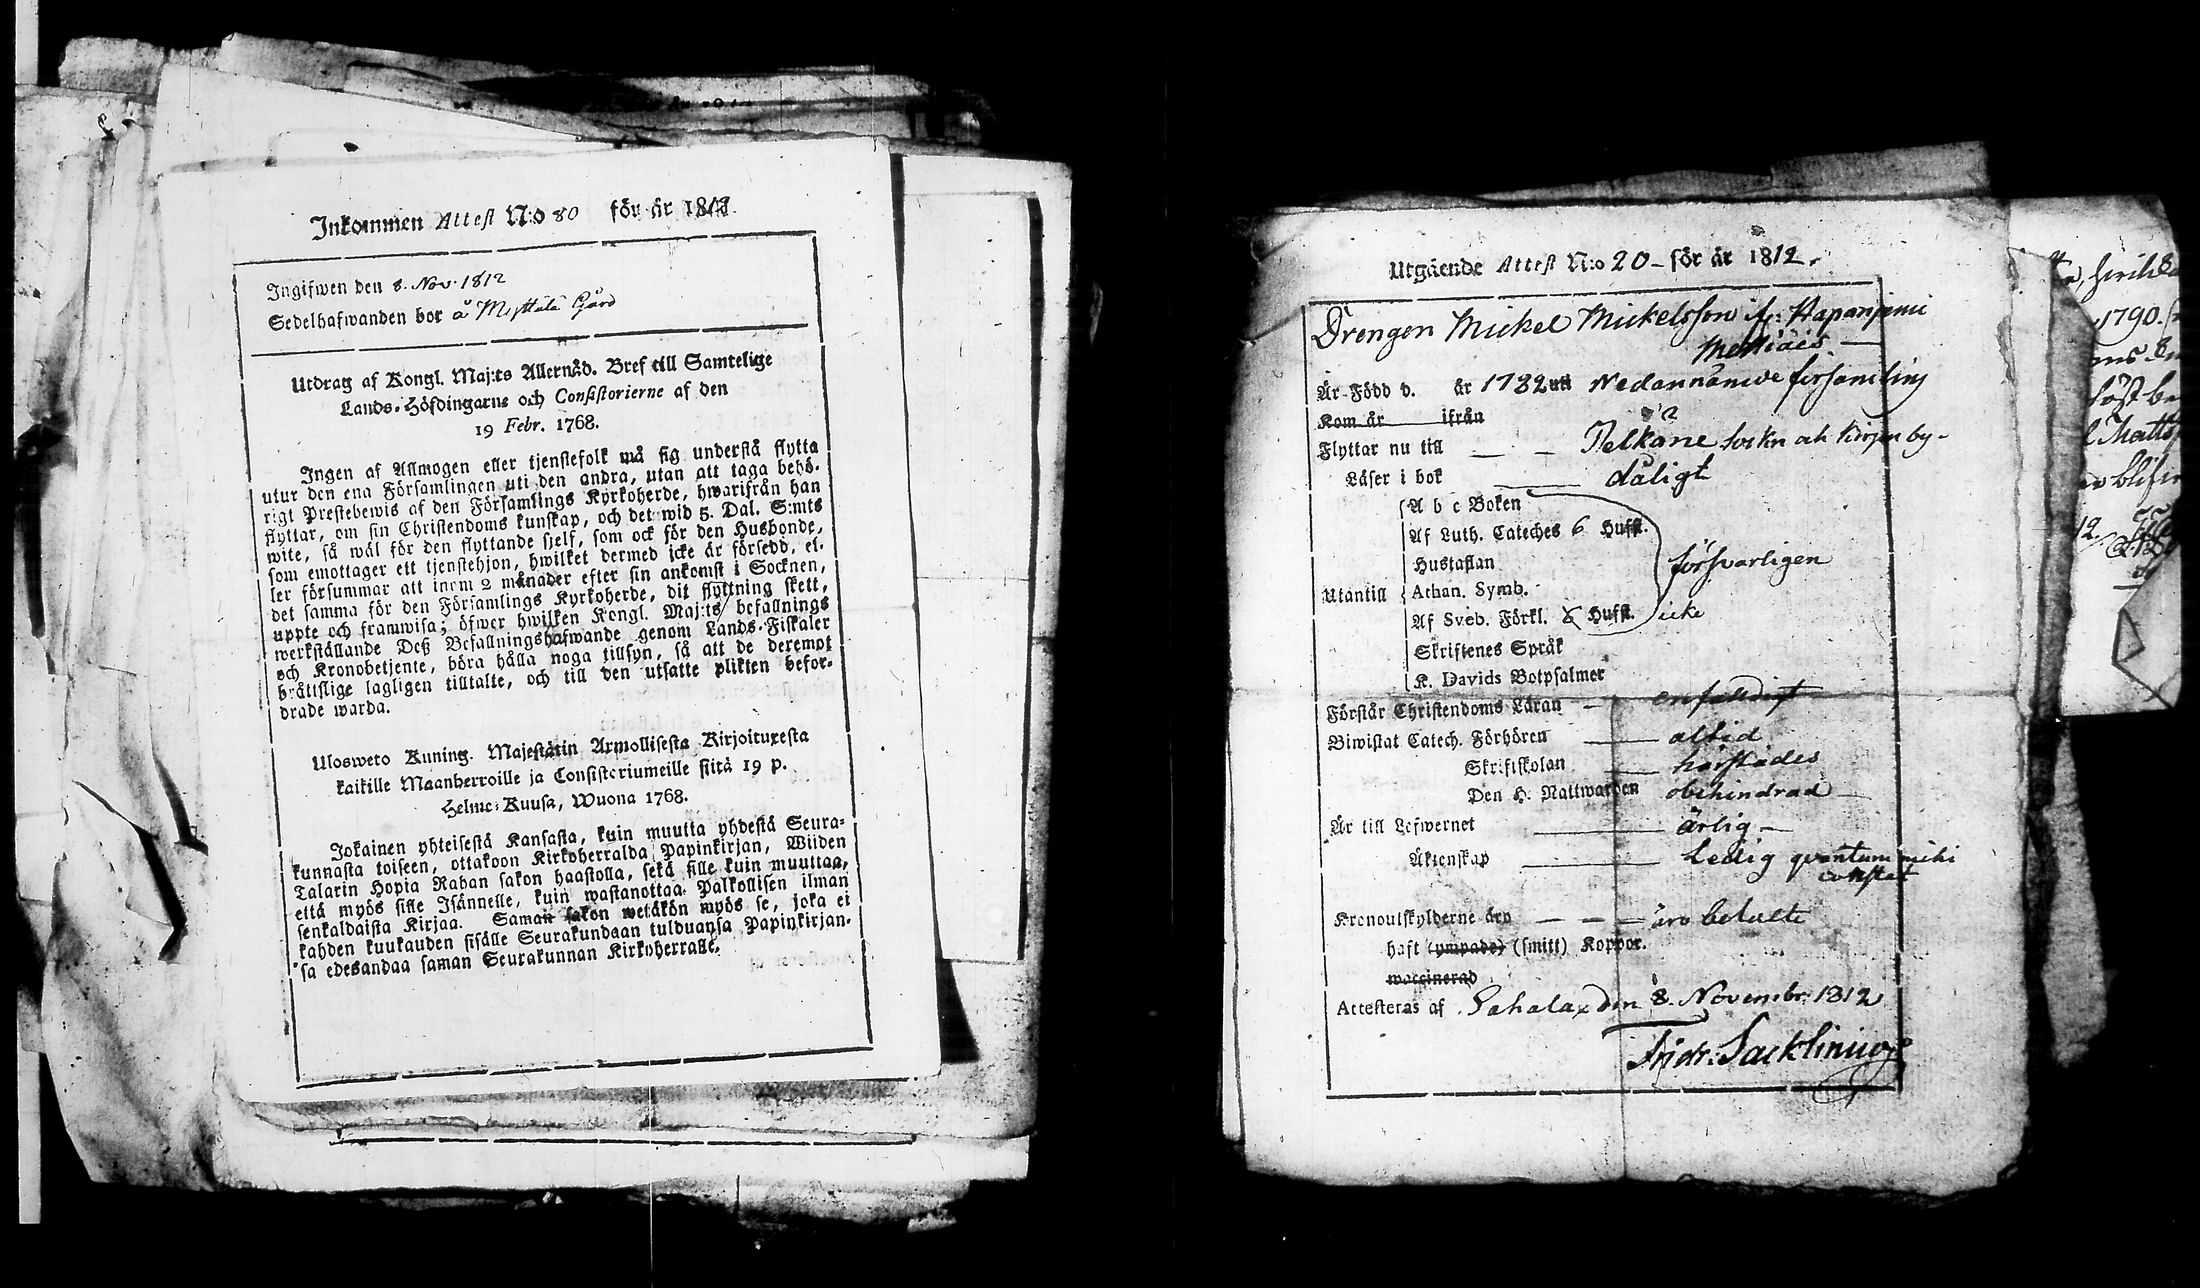 Inkommen Attest N:o 80 för år 1812.
Ingifwen den 8. Nov. 1812
Sedelhafwanden bor å Myttälä Gård
Utdrag af Kongl. Maj:ts Allernåd. Bref till Samtelige
Lands-Höfdingarne och Consistorierne af den
19 Febr. 1768.
Ingen af Allmogen eller tjenstefolk må sig understå flytta
utur den ena Församlingen uti den andra, utan att taga behö-
rigt Prestebewis af den Församlings Kyrkoherde, hwarifrån han
flyttar, om sin Christendoms kunskap, och det wid 5. Dal. S:mts
wite, så wäl för den flyttande sjelf, som ock för den Husbonde,
som emottager ett tjenstehjon, hwilket dermed icke är försedd, el-
ler försummar att inom 2 månader efter sin ankomst i Socknen,
det samma för den Församlings Kyrkoherde, dit flyttning skett,
uppte och framwisa; öfwer hwilken Kongl. Maj:ts befallnings
werkställande Deß Befallningshafwande genom Lands-Fiskaler
och Kronobetjente, böra hålla noga tillsyn, så att de deremot
bråttslige lagligen tilltalte, och till den utsatte plikten befor-
drade warda.
Ulosweto Kuning. Majestätin Armollisesta Kirjoituxesta
kaikille Maanherroille ja Consistoriumeille siitä 19 p.
Helme-Kuusa, Wuona 1768.
Jokainen yhteisestä Kansasta, kuin muutta yhdestä Seura-
kunnasta toiseen, ottakoon Kirkoherralda Papinkirjan, Wiiden
Talarin Hopia Rahan sakon haastolla, sekä sille kuin muuttaa,
että myös sille Isännelle, kuin wastanottaa Palkollisen ilman
senkaldaista Kirjaa. Saman sakon wetäkön myös se, joka ei
kahden kuukauden sisälle Seurakundaan tulduansa Papinkirjan-
sa edesandaa saman Seurakunnan Kirkoherralle.
Utgående Attest N:o 20 för år 1812.
Drengen Mickel Mickelsson fr. Hapaniemi
är Född d. år 1782 uti Nedannämde församling
Kom år ifrån
Flyttar nu till Pelkäne sockn och by
Läser i bok dåligt
A b c Boken
Af Luth. Cateches 6 Hufst.
Hustaflan
försvarligen
Utantill Athan. Symb.
Af Sveb. Förkl. 8 Hufst. icke
Skriftenes Språk
K. Davids Botpsalmer
Förstår Christendoms Läran enfaldigt
Biwistat Catech. Förhören altid
Skriftskolan härstädes
Den H. Nattwarden obehindrad
Är till Lefwernet ärlig
Äktenskap Ledig quantum mihi
constat
Kronoutskylderne äro äro betalte
haft (ympade) (smitt) Koppor.
waccinerad
Attesteras af Sahalax den 8. Novembr. 1812
Fridr: Sacklinius